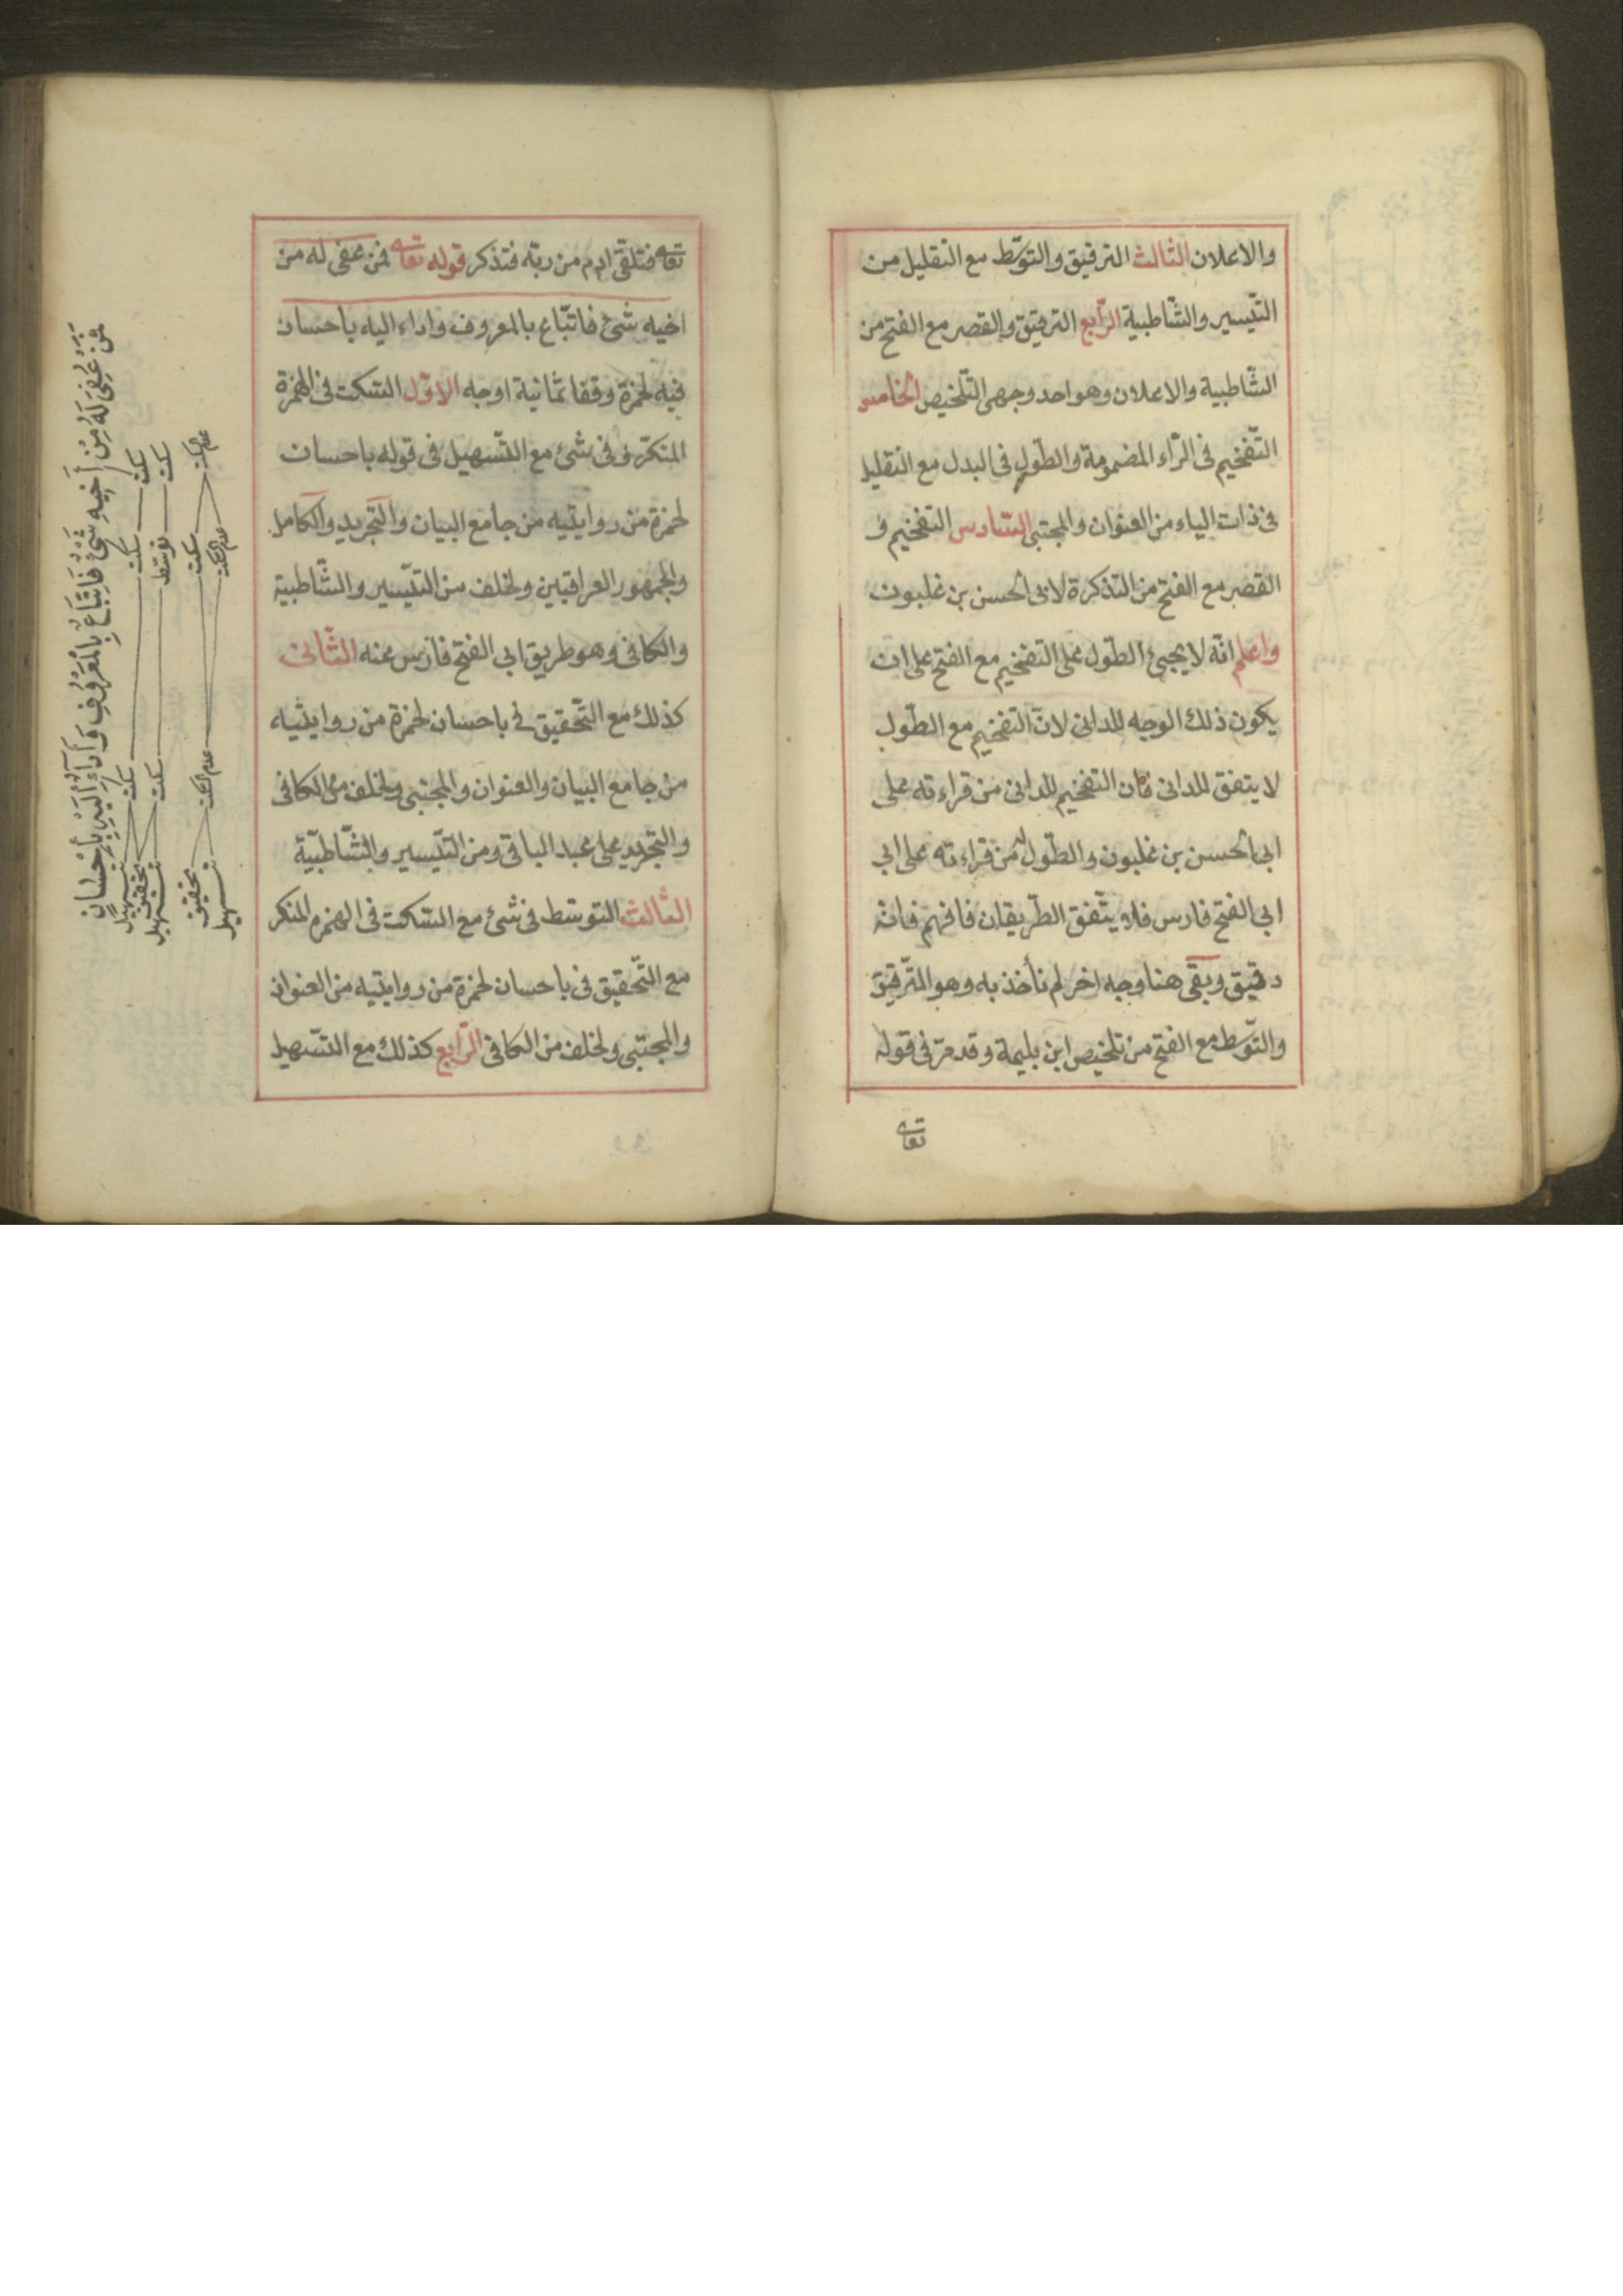 والاعلان الثالث الترقيق والتوسّط مع التقليل من
التّيسير والشّاطبية الرّابع الترقيق والقصر مع الفتح من
الشّاطبية والاعلان وهو احد وجهى التّلخيص الخامس
التّفخيم فى الرّاء المضمومة والطول فى البدل مع التقليل
فى ذات الياء من العنوان والمجتبى السّادس التفخيم و
القصر مع الفتح من التذكرة لابى الحسن بن غلبون
واعلم انّه لا يجيئ الطّول على التفخيم مع الفتح على ان
يكون ذلك الوجه للدانى لانّ التفخيم مع الطّول
لا يتفق للدانى فان التفخيم للدانى من قراءته على
ابى الحسن بن غلبون والطّول له من قراءته على ابى
ابى الفتح فارس فلا يتّفق الطّريقان فافهم فانه
دقيق وبقى هنا وجه اخر لم نأخذ به وهو التّرقيق
والتّوسّط مع الفتح من تلخيص ابن بليمة وقد مرّ فى قوله
تعا
تعا فتلقّى ادم من ربّه فتذكر قوله تعا فمن عفى له من
اخيه شئ فاتّباع بالمعروف واداء اليه باحسان
فيه لحمزة وقفا ثمانية اوجه الاوّل السّكت فى الهمزة
المنكّر وفى شئ مع التّسهيل فى قوله باحسان
لحمزة من روايتيه من جامع البيان والتجريد والكامل
والجمهور العراقيين ولخلف من التيّسير والشّاطبية
والكافى وهو طريق ابى الفتح فارس عنه الثّانى
كذلك مع التّحقيق فى باحسان لحمزة من روايتيه
من جامع البيان والعنوان والمجتبى ولخلف من الكافى
والتجريد على عبد الباقى ومن التّيسير والشّاطبيّة
الثالث التوسّط فى شئ مع السّكت فى الهمزه المنكر
مع التّحقيق فى باحسان لحمزة من روايتيه من العنوان
والمجتبى ولخلف من الكافى الرّابع كذلك مع التّسهيل
فَمَنْ عُفِىَ لَهُ مِنْ أَخِيهِ شَىْءٌ فَاتِّبَاعٌ بِالْمَعْرُوفِ وَأَدَاءٌ إِلَيْهِ بِإِحْسَانٍ
سكت سكت سكت تسهيل تحقيق
سكت توسّط سكت تسهيل
عدم السكت سكت عدم السكت تحقيق
عدم السكت تسهيل